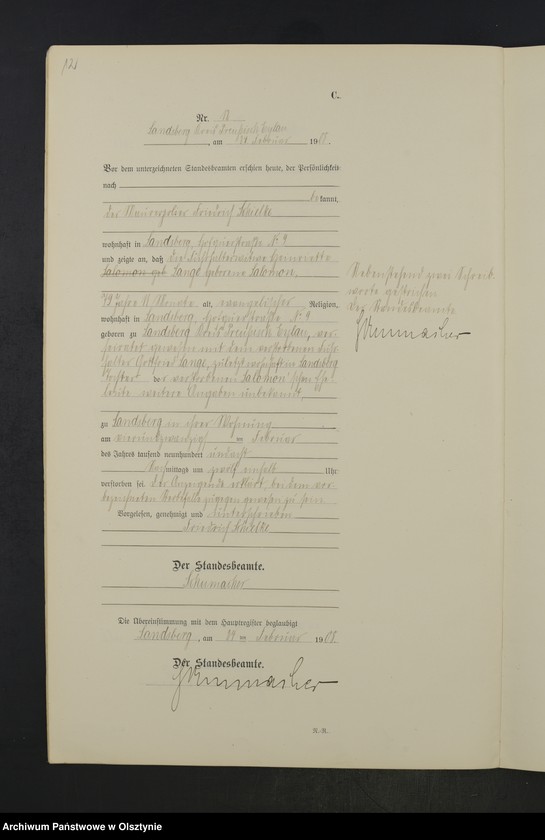 121
C.
Nr. 12
Landsberg Kreis Preußisch Eylau
, am 24 Februar 1908.
Vor dem unterzeichneten Standesbeamten erschien heute, der Persönlichkeit
nach
bekannt,
der Maurerpolier Friedrich Schielke
wohnhaft in Landsberg, № 9
und zeigte an, daß die Witwe Henriette
Salomon geb. Lange geborene Salomon,
79 Jahre 11 Monate alt, evangelischer Religion,
wohnhaft in Landsberg, № 9
geboren zu Landsberg Kreis Preußisch Eylau, ver-
heiratet gewesen mit dem verstorbenen
Gottfried Lange, zuletzt wohnhaft in Landsberg
Tochter der verstorbenen Salomon'schen Ehe-
leute weitere Angaben unbekannt,
zu Landsberg in ihrer Wohnung
am vierundzwanzigsten Februar
des Jahres tausend neunhundert und acht
Vormittags um zwölf einhalb Uhr
verstorben sei. Der Anzeigende erklärt, bei dem vor-
bezeichneten Sterbefalle zugegen gewesen zu sein.
Vorgelesen, genehmigt und unterschrieben
Friedrich Schielke
Der Standesbeamte.
Schumacher
Die Übereinstimmung mit dem Hauptregister beglaubigt
Landsberg, am 24 ten Februar 1908
Der Standesbeamte.
Schumacher
N.-R.
Nebenstehend zwei Schreib-
worte gestrichen
Der Standesbeamte
Schumacher
Archiwum Państwowe w Olsztynie